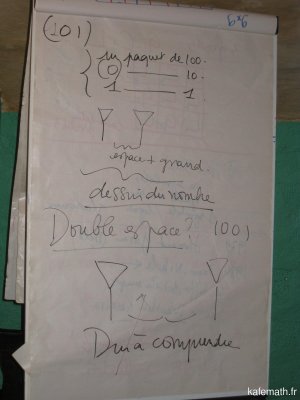 (101)
un paquet de 100.
0 10.
1 1
espace + grand.
dessin du nombre
Double espace? (001)
Dur à comprendre
kafemath.fr